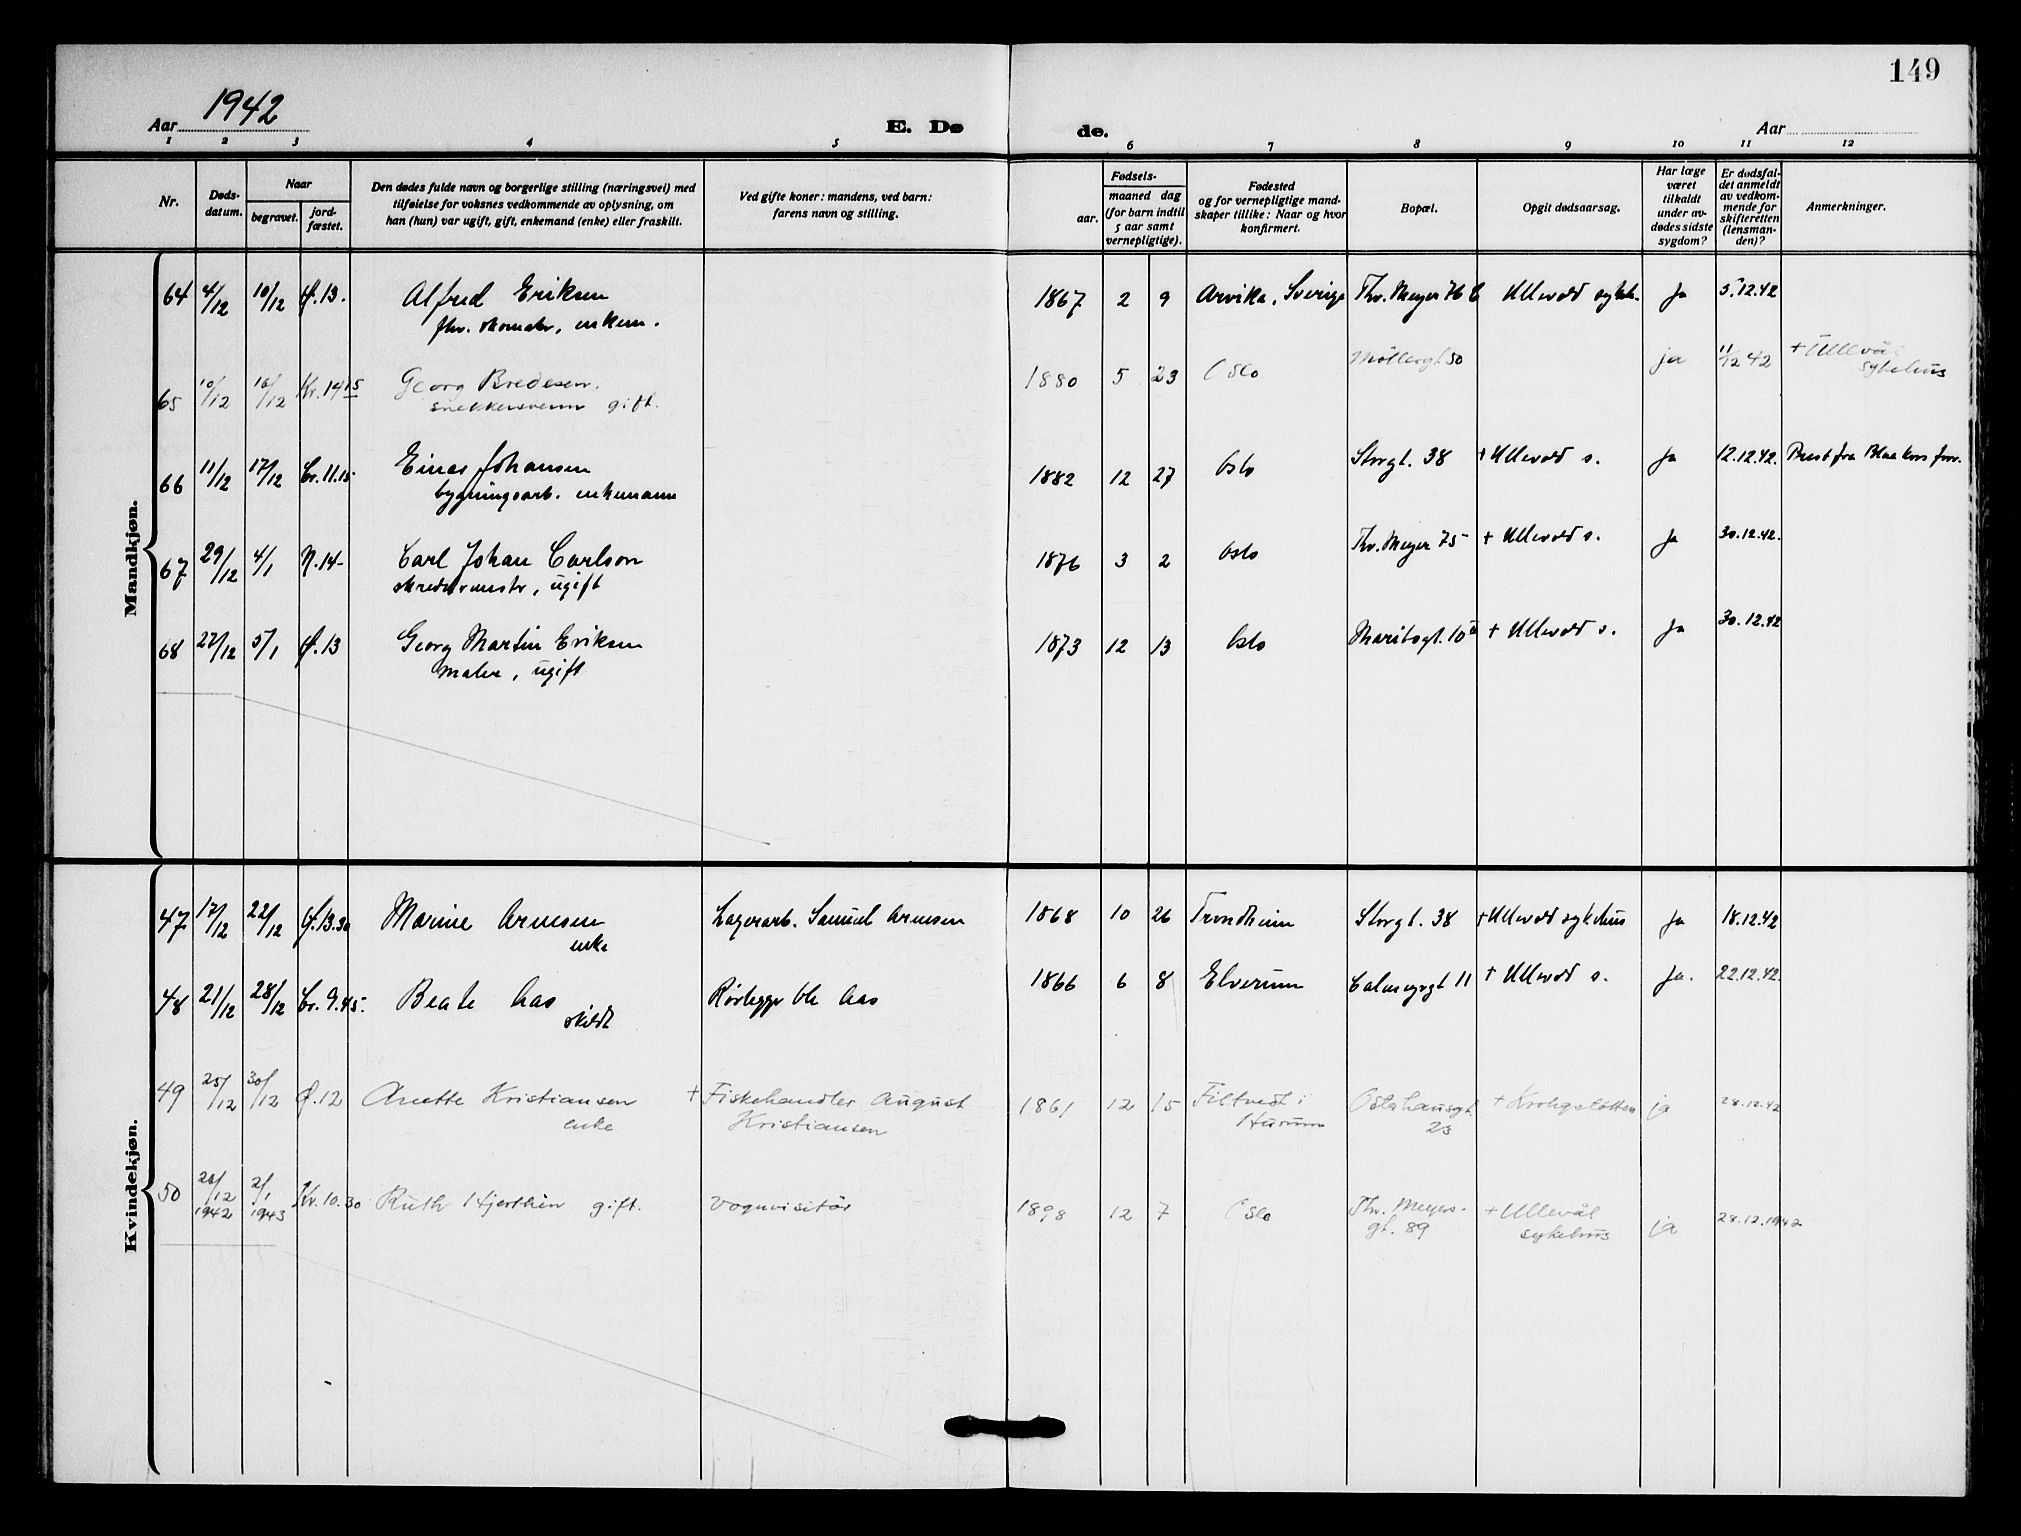 149
Aar 1942
E. Dø de.
Aar
1 2 3 4 5 6 7 8 9 10 11 12
Nr.
Døds-
datum.
Naar
begravet.
jord-
fæstet.
Den dødes fulde navn og borgerlige stilling (næringsvei) med
tilføielse for voksnes vedkommende av oplysning, om
han (hun) var ugift, gift, enkemand (enke) eller fraskilt.
Ved gifte koner: mandens, ved barn:
farens navn og stilling.
Fødsels-
aar.
maaned dag
(for barn indtil
5 aar samt
vernepligtige).
Fødested
og for vernepligtige mand-
skaper tillike: Naar og hvor
konfirmert.
Bopæl.
Opgit dødsaarsag.
Har læge
været
tilkaldt
under av-
dødes sidste
sygdom?
Er dødsfal-
det anmeldt
av vedkom-
mende for
skifteretten
(lensman-
den)?
Anmerkninger.
Mandkjøn.
64 4/12 10/12 Ø.13. Alfred Eriksen 1867 2 9 Arvika, Sverige Thv. Meyer 76 Ullevold sykeh. ja 5.12.42
fhv. skomaker, enkem.
65 10/12 16/12 Kr. 14 15 Georg Bredesen. 1880 5 23 Oslo Møllergt. 50 ja 11/12 42 + Ullevål
snekkersvenn gift. sykehus
66 11/12 17/12 Cr. 11.15 Einar Johansen 1882 12 27 Oslo Storgt. 38 + Ullevold s. ja 12.12.42. Prest fra Blaa kors forr.
bygningsarb. enkemann
67 29/12 4/1 N. 14- Carl Johan Carlson 1876 3 2 Oslo Thv. Meyer 75 + Ullevold s. ja 30.12.42.
skreddermestr, ugift
68 27/12 5/1 Ø.13 Georg Martin Eriksen 1873 12 13 Oslo Maritsgt. 10 + Ullevold s. ja 30.12.42
maler, ugift
Kvindekjøn.
47 17/12 22/12 Ø.13.30 Marine Arnesen Lagerarb. Samuel Arnesen 1868 10 26 Trondheim Storgt. 38 + Ullevold sykehus ja 18.12.42
enke
48 21/12 28/12 Cr. 9.45. Beate Aas Rørlegger Ole Aas 1866 6 8 Elverum Calmeyrgt 11 + Ullevold s. ja. 22.12.42.
skildt
49 25/12 30/12 Ø.12 Anette Kristiansen + Fiskehandler August 1861 12 15 Filtvedt i Osterhausgt. + Krohgstøtten ja 28.12.42
enke Kristiansen Hurum 23
50 28/12 1942 2/1 1943 Kr. 10.30 Ruth Hjerthén gift. vognvisitør 1898 12 7 Oslo Thv. Meyers- + Ullevål ja 28.12.1942
gt. 89 sykehus